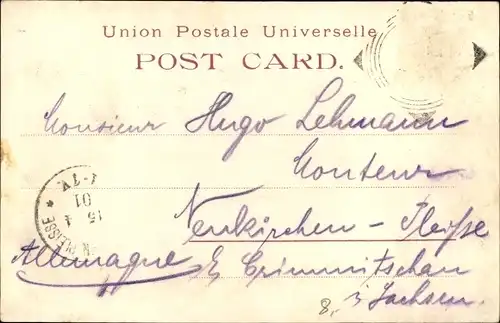 Union Postale Universelle
POST CARD.
Monsieur Hugo Lehmann
Monteur
Neukirchen - Pleisse
Allemagne b/ Crimmitschau
i/ Sachsen.
8.
1-7V.
01
15 4
PLEISSE *